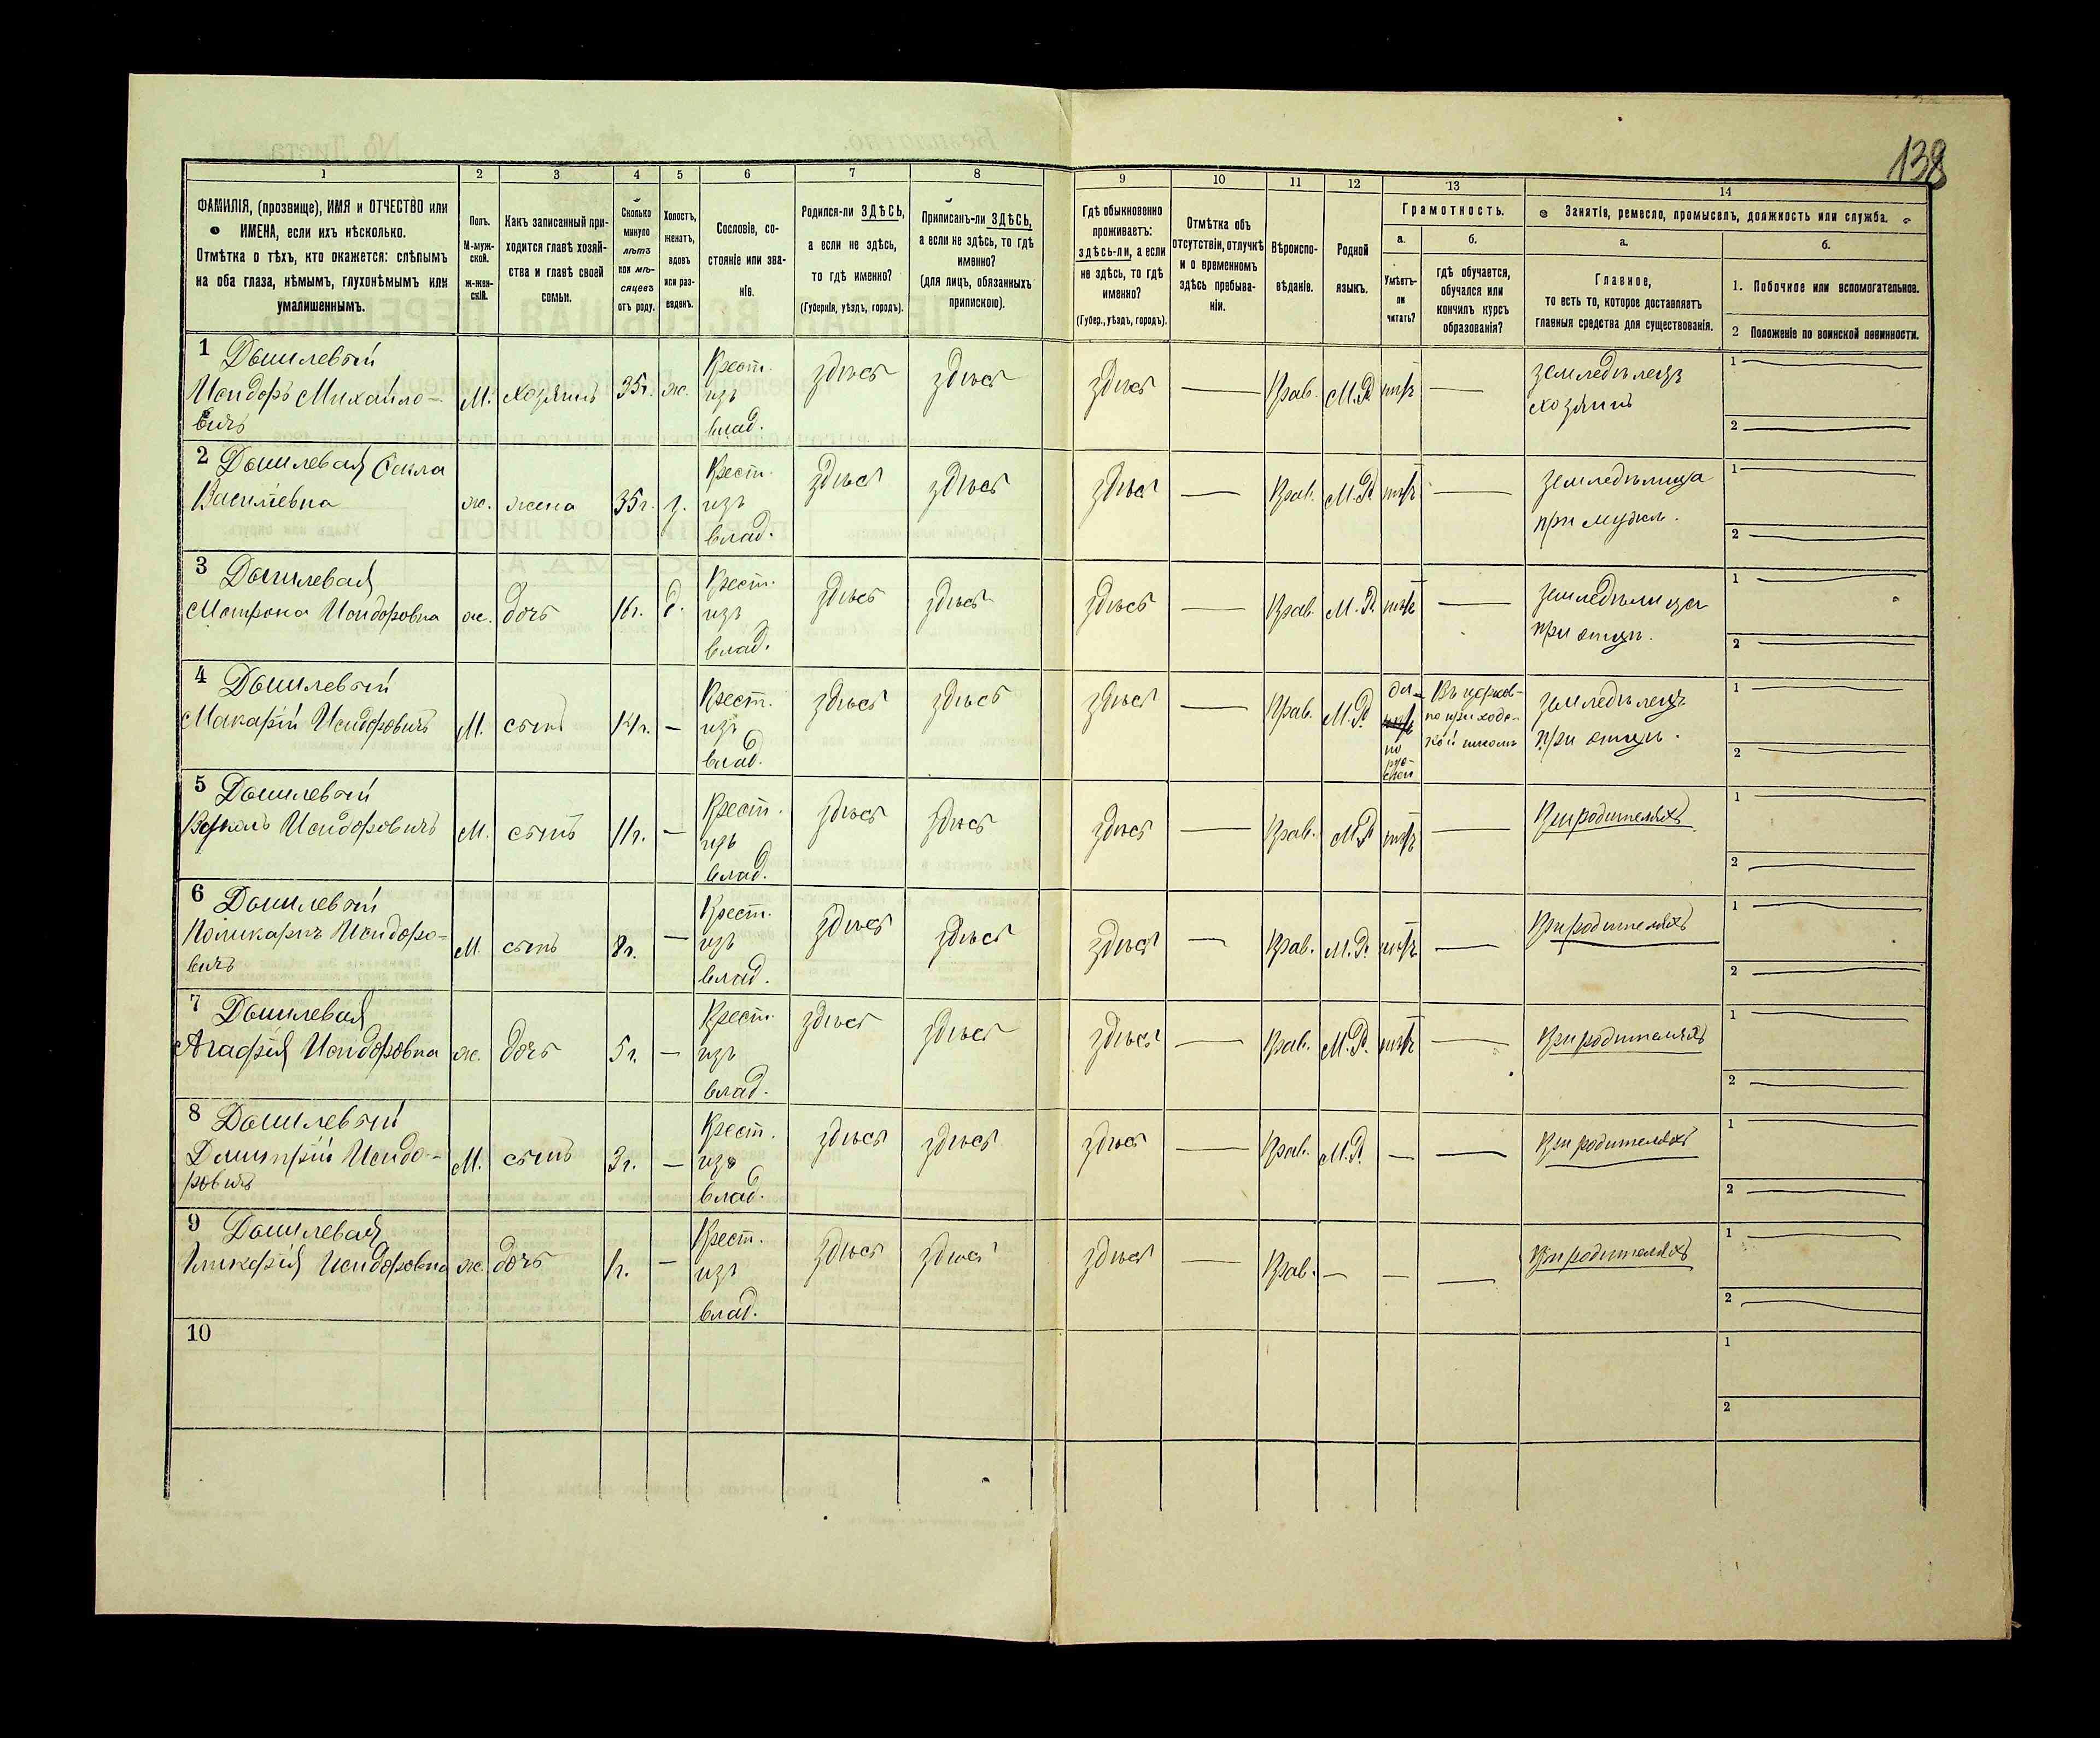 138
1 2 3 4 5 6 7 8 9 10 11 12 13 14
ФАМИЛІЯ, (прозвище), ИМЯ и ОТЧЕСТВО или
ИМЕНА, если ихъ нѣсколько.
Отмѣтка о тѣхъ, кто окажется: слѣпымъ
на оба глаза, нѣмымъ, глухонѣмымъ или
умалишеннымъ.
Полъ.
М-муж-
ской.
ж-жен-
скій.
Какъ записанный при-
ходится главѣ хозяй-
ства и главѣ своей
семьи.
Сколько
минуло
лѣтъ
или мѣ-
сяцевъ
отъ роду.
Холостъ,
женатъ,
вдовъ
или раз-
веденъ.
Сословіе, со-
стояніе или зва-
ніе.
Родился-ли ЗДѢСЬ,
а если не здѣсь,
то гдѣ именно?
(Губернія, уѣздъ, городъ).
Приписанъ-ли ЗДѢСЬ,
а если не здѣсь, то гдѣ
именно?
(для лицъ, обязанныхъ
припискою).
Гдѣ обыкновенно
проживаетъ:
здѣсь-ли, а если
не здѣсь, то гдѣ
именно?
(Губер., уѣздъ, городъ).
Отмѣтка объ
отсутствіи, отлучкѣ
и о временномъ
здѣсь пребыва-
ніи.
Вѣроиспо-
вѣданіе.
Родной
языкъ.
Грамотность.
а.
Умѣетъ-
ли
читать?
б.
гдѣ обучается,
обучался или
кончилъ курсъ
образованія?
Занятія, ремесло, промыселъ, должность или служба.
а.
Главное,
то есть то, которое доставляетъ
главныя средства для существованія.
б.
1. Побочное или вспомогательное.
2 Положеніе по воинской повинности.
1
Исидоръ Михайло-
вичъ
М. хозяинъ 35г. ж.
Крест.
изъ
влад.
здѣсь здѣсь здѣсь — Прав. М.Р. нѣтъ —
земледѣлецъ
хозяинъ
1 —
2 —
2 Текла
Василіевна
ж. жена 35г. з.
Крест.
изъ
влад.
здѣсь здѣсь здѣсь — Прав. М.Р. нѣтъ —
земледѣлица
при мужѣ.
1 —
2 —
3
Матрона Исидоровна
ж. дочь 16г. д.
Крест.
изъ
влад.
здѣсь здѣсь здѣсь — Прав. М.Р. нѣтъ —
земледѣлица
при отцѣ.
1 —
2 —
4
Макарій Исидоровичъ
М. сынъ 14г. —
Крест.
изъ
влад.
здѣсь здѣсь здѣсь — Прав. М.Р.
да
нѣтъ
по
рус-
ски
Въ церков-
но приходс-
кой школѣ
земледѣлецъ
при отцѣ.
1 —
2 —
5
Исидоровичъ
М. сынъ 11г. —
Крест.
изъ
влад.
здѣсь здѣсь здѣсь — Прав. М.Р. нѣтъ —
При родителяхъ
1 —
2 —
6
Поликарпъ Исидоро-
вичъ
М. сынъ 8г. —
Крест.
изъ
влад.
здѣсь здѣсь здѣсь — Прав. М.Р. нѣтъ —
При родителяхъ
1 —
2 —
7
Агафія Исидоровна
ж. дочь 5г. —
Крест.
изъ
влад.
здѣсь здѣсь здѣсь — Прав. М.Р. нѣтъ —
При родителяхъ
1 —
2 —
8
Димитрій Исидо-
ровичъ
М. сынъ 3г. —
Крест.
изъ
влад.
здѣсь здѣсь здѣсь — Прав. М.Р. — —
При родителяхъ
1 —
2 —
9
Гликерія Исидоровна
ж. дочь 1г. —
Крест.
изъ
влад.
здѣсь здѣсь здѣсь — Прав. — — —
При родителяхъ
1 —
2 —
10
1
2